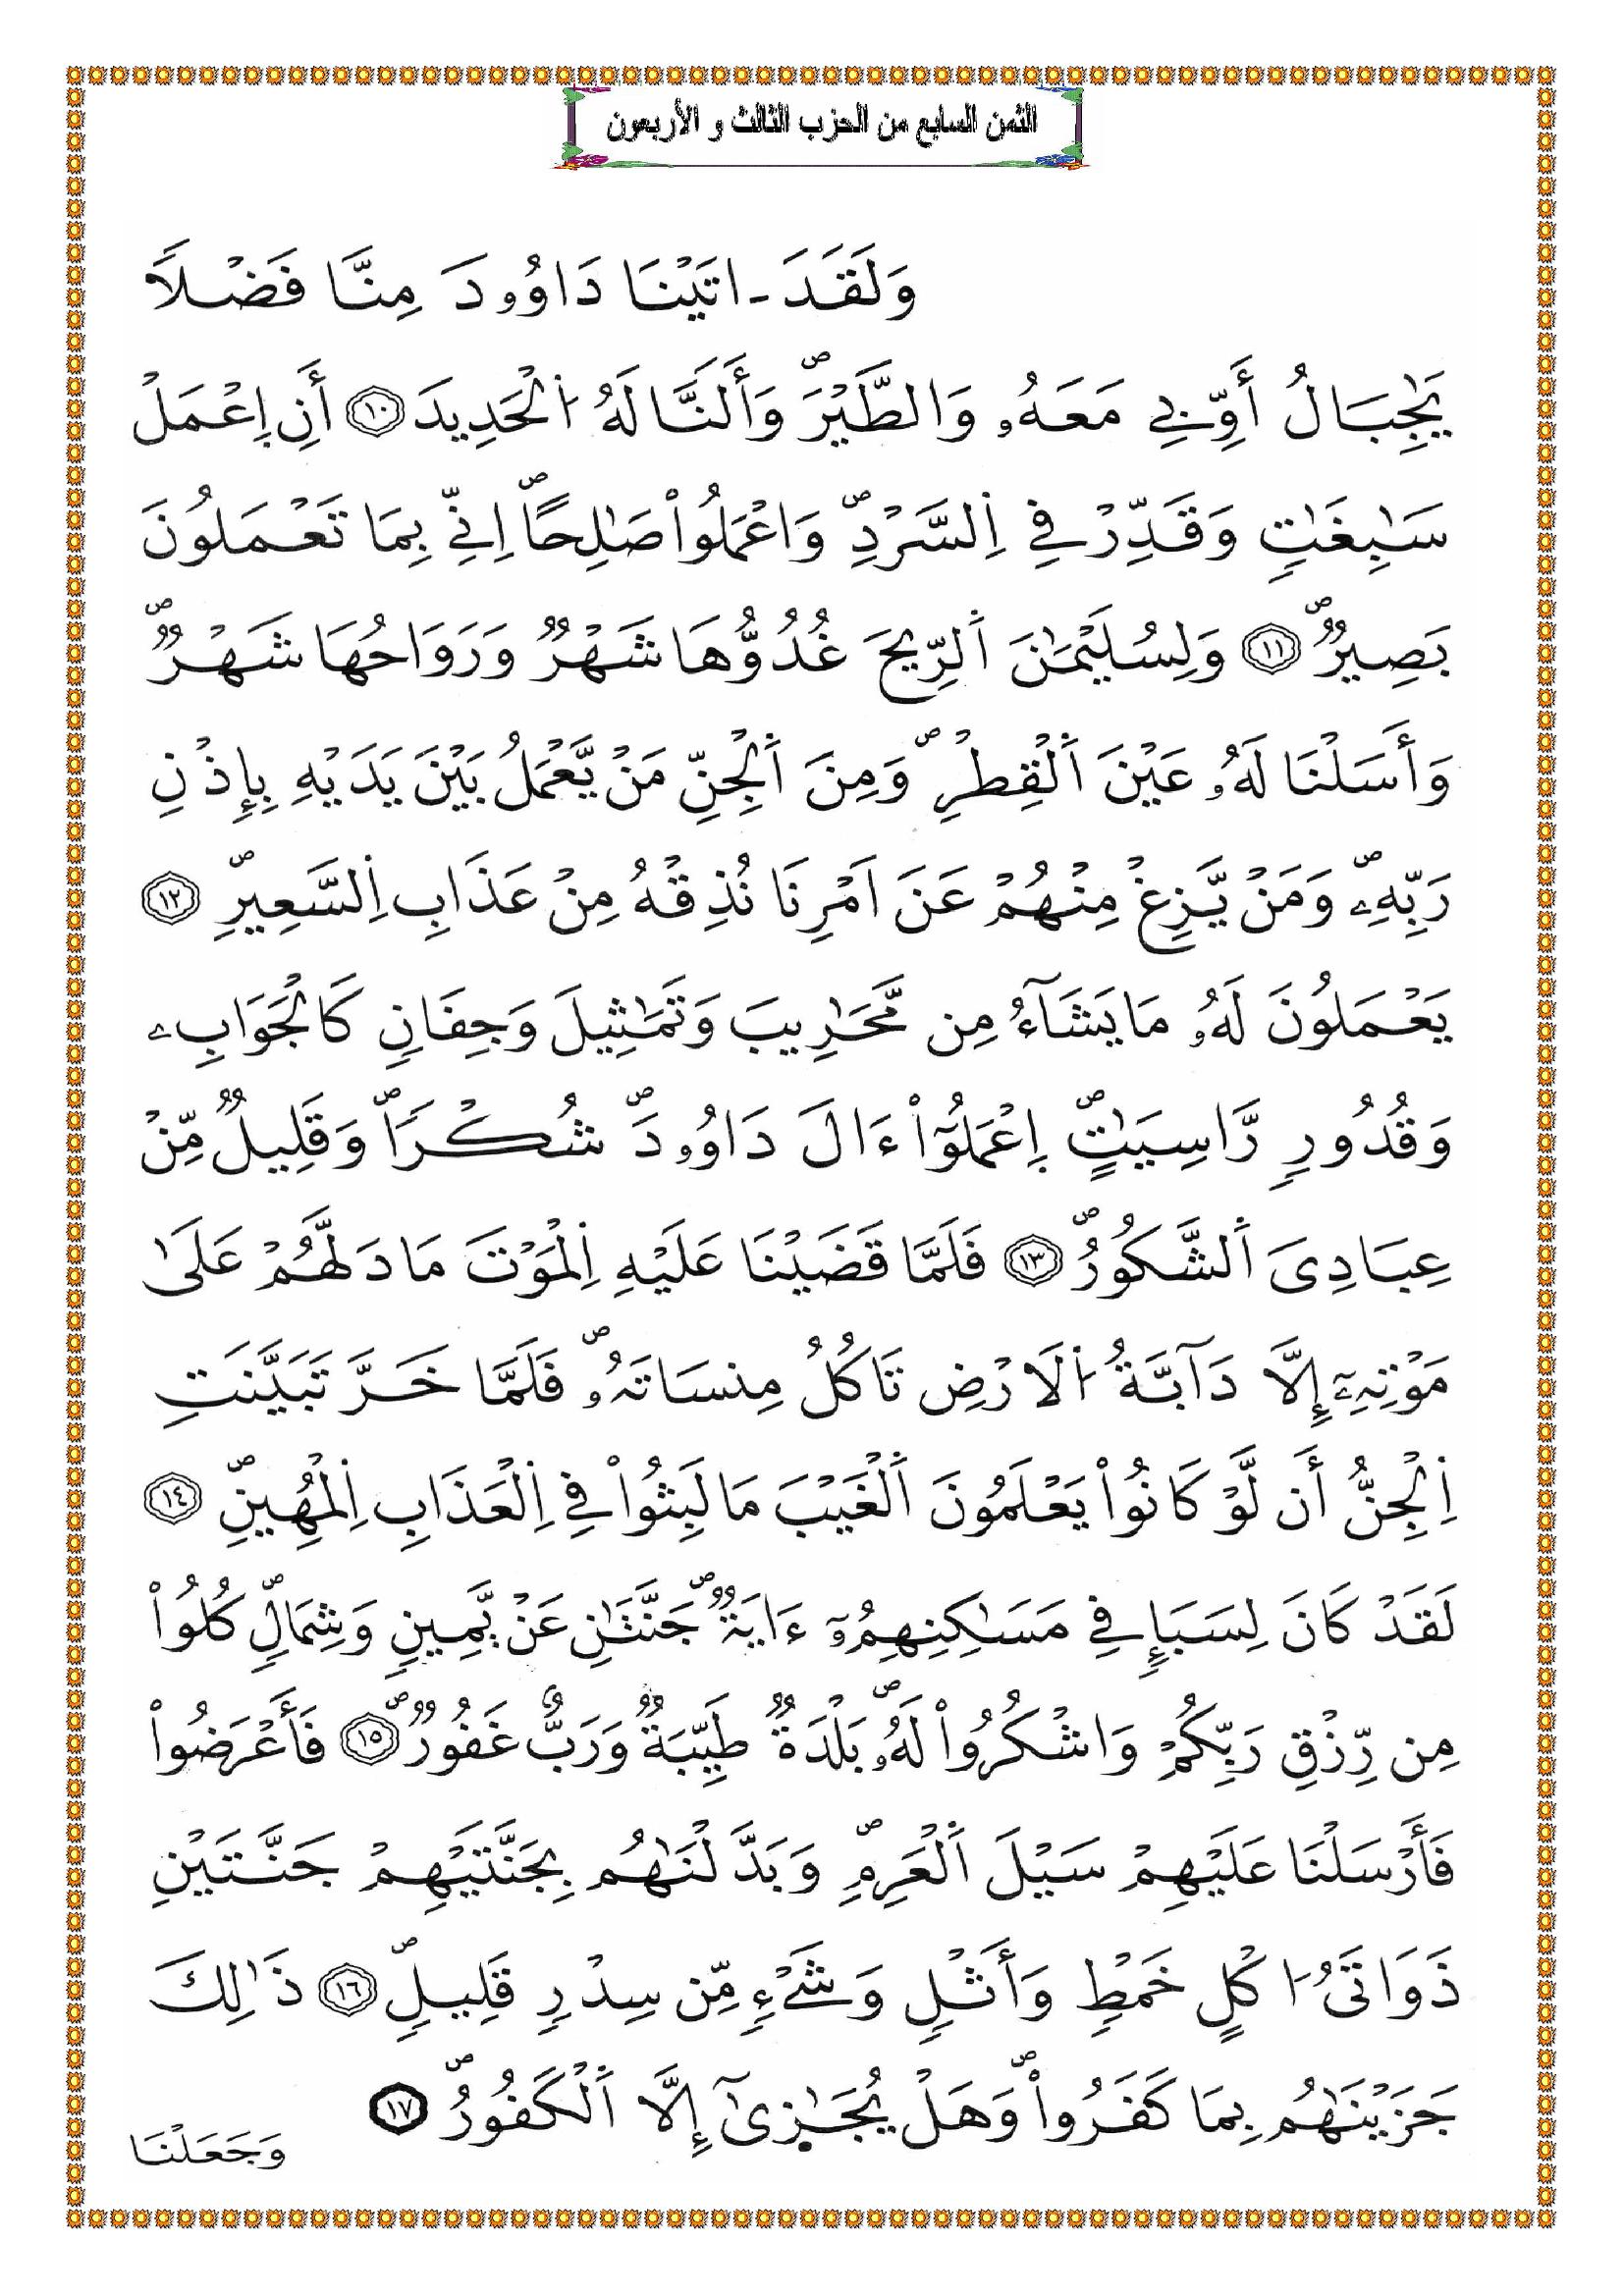 الثمن السابع من الحزب الثالث و الأربعون
وَلَقَدَ ـ اتَيْنَا دَاوُۥدَ مِنَّا فَضْلاً
يَٰجِبَالُ أَوِّبِے مَعَهُۥ وَالطَّيْرَۖ وَأَلَنَّا لَهُ اُ۬لْحَدِيدَ ١٠ أَنِ اِعْمَلْ
سَٰبِغَٰتٖ وَقَدِّرْ فِے اِ۬لسَّرْدِۖ وَاعْمَلُواْ صَٰلِحاًۖ اِنِّے بِمَا تَعْمَلُونَ
بَصِيرٞۖ ١١ وَلِسُلَيْمَٰنَ اَ۬لرِّيحَ غُدُوُّهَا شَهْرٞ وَرَوَاحُهَا شَهْرٞۖ
وَأَسَلْنَا لَهُۥ عَيْنَ اَ۬لْقِطْرِۖ وَمِنَ اَ۬لْجِنِّ مَنْ يَّعْمَلُ بَيْنَ يَدَيْهِ بِإِذْنِ
رَبِّهِۦۖ وَمَنْ يَّزِغْ مِنْهُمْ عَنَ اَمْرِنَا نُذِقْهُ مِنْ عَذَابِ اِ۬لسَّعِيرِۖ ١٢
يَعْمَلُونَ لَهُۥ مَا يَشَآءُ مِن مَّحَٰرِيبَ وَتَمَٰثِيلَ وَجِفَانٖ كَالْجَوَابِۦ
وَقُدُورٖ رَّاسِيَٰتٍۖ اِ۪عْمَلُوٓاْ ءَالَ دَاوُۥدَۖ شُكْراٗۖ وَقَلِيلٞ مِّنْ
عِبَادِىَ اَ۬لشَّكُورُۖ ١٣ فَلَمَّا قَضَيْنَا عَلَيْهِ اِ۬لْمَوْتَ مَا دَلَّهُمْ عَلَىٰ
مَوْتِهِۦٓ إِلَّا دَآبَّةُ اُ۬لَارْضِ تَاكُلُ مِنسَاتَهُۥۖ فَلَمَّا خَرَّ تَبَيَّنَتِ
اِ۬لْجِنُّ أَن لَّوْ كَانُواْ يَعْلَمُونَ اَ۬لْغَيْبَ مَا لَبِثُواْ فِے اِ۬لْعَذَابِ اِ۬لْمُهِينِۖ ١٤
لَقَدْ كَانَ لِسَبَإٖ فِے مَسَٰكِنِهِمُۥٓ ءَايَةٞۖ جَنَّتَٰنِ عَنْ يَّمِينٖ وَشِمَالٖۖ كُلُواْ
مِن رِّزْقِ رَبِّكُمْ وَاشْكُرُواْ لَهُۥۖ بَلْدَةٞ طَيِّبَةٞ وَرَبٌّ غَفُورٞۖ ١٥ فَأَعْرَضُواْ
فَأَرْسَلْنَا عَلَيْهِمْ سَيْلَ اَ۬لْعَرِمِۖ وَبَدَّلْنَٰهُم بِجَنَّتَيْهِمْ جَنَّتَيْنِ
ذَوَاتَىُ ا۟كْلٍ خَمْطٖ وَأَثْلٖ وَشَےْءٖ مِّن سِدْرٖ قَلِيلٖۖ ١٦ ذَٰلِكَ
جَزَيْنَٰهُم بِمَا كَفَرُواْۖ وَهَلْ يُجَٰز۪ىٰٓ إِلَّا اَ۬لْكَفُورُۖ ١٧
وَجَعَلْنَا